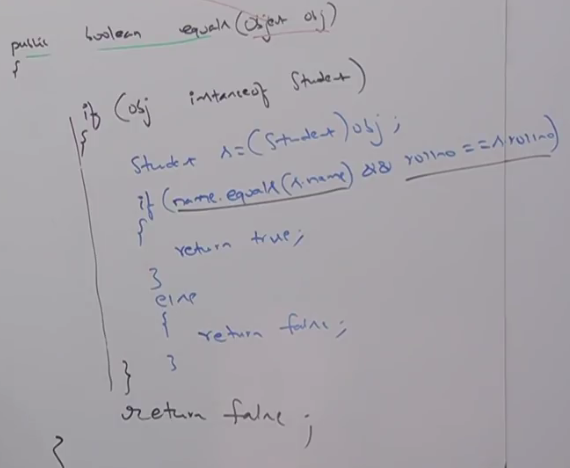 public boolean equals(Object obj)
{
if (obj instanceof Student)
{
Student s=(Student)obj;
if (name.equals(s.name) && rollno==s.rollno)
{
return true;
}
else
{ return false;
}
}
return false;
}